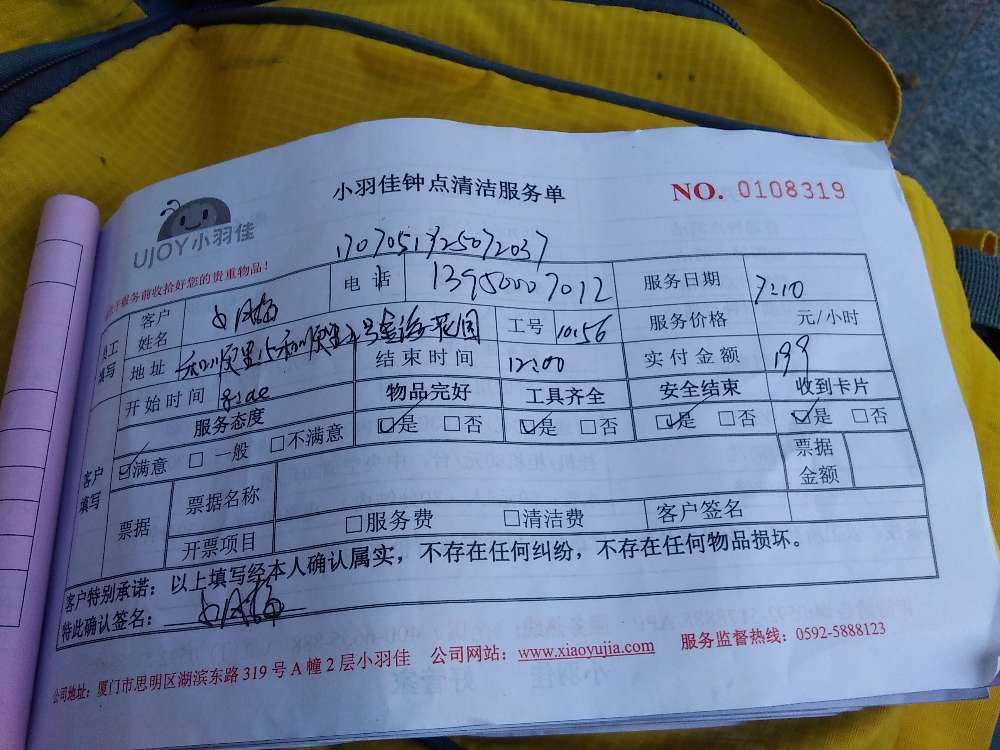 小羽佳钟点清洁服务单
NO. 0108319
UJOY小羽佳
1707051925072037
服务前收拾好您的贵重物品!
员工填写 客户姓名 电话 13950007012 服务日期 7.10
地址 工号 10156 服务价格 元/小时
开始时间 结束时间 12:00 实付金额 199
客户填写 服务态度 物品完好 工具齐全 安全结束 收到卡片
☑满意 □一般 □不满意 ☑是 □否 ☑是 □否 ☑是 □否 ☑是 □否
票据 票据名称 票据金额
开票项目 □服务费 □清洁费 客户签名
客户特别承诺:以上填写经本人确认属实,不存在任何纠纷,不存在任何物品损坏。
特此确认签名:
公司地址:厦门市思明区湖滨东路319号A幢2层小羽佳 公司网站:www.xiaoyujia.com 服务监督热线:0592-5888123